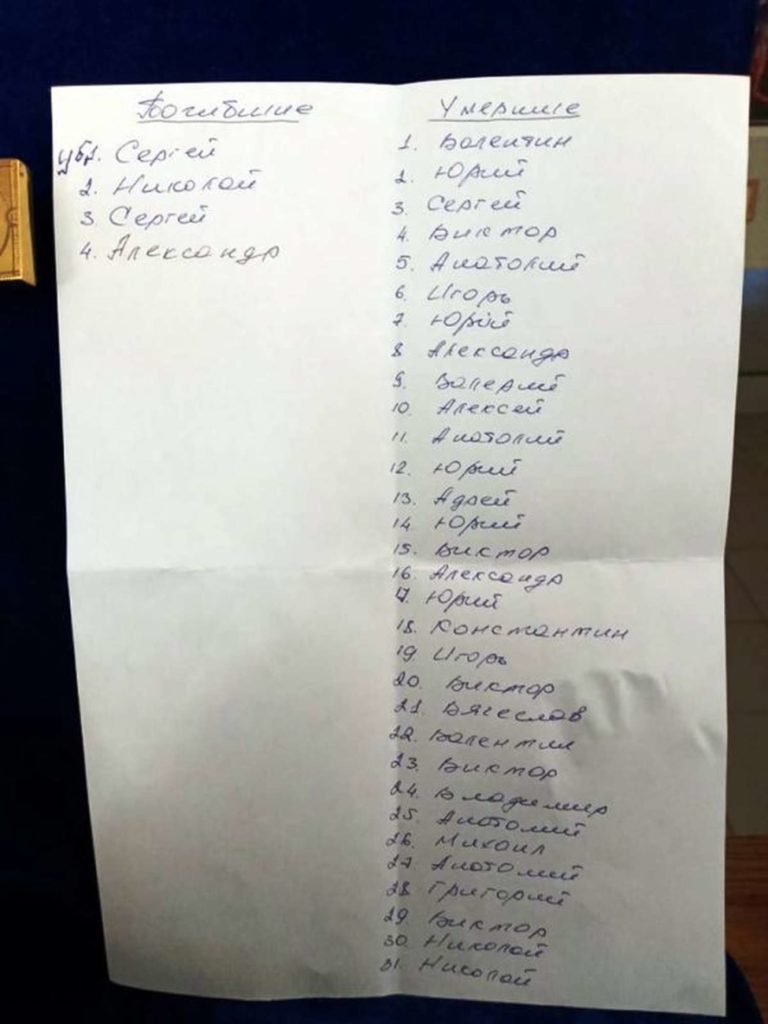 Погибшие
уб1. Сергей
2. Николай
3. Сергей
4. Александр
Умершие
1. Валентин
2. Юрий
3. Сергей
4. Виктор
5. Анатолий
6. Игорь
7. Юрий
8 Александр
9. Валерий
10. Алексей
11. Анатолий
12. Юрий
13. Адрей
14. Юрий
15. Виктор
16. Александр
17. Юрий
18. Константин
19. Игорь
20. Виктор
21. Вячеслав
22. Валентин
23. Виктор
24. Владимир
25. Анатолий
26. Михаил
27. Анатолий
28 Григорий
29. Виктор
30. Николай
31. Николай